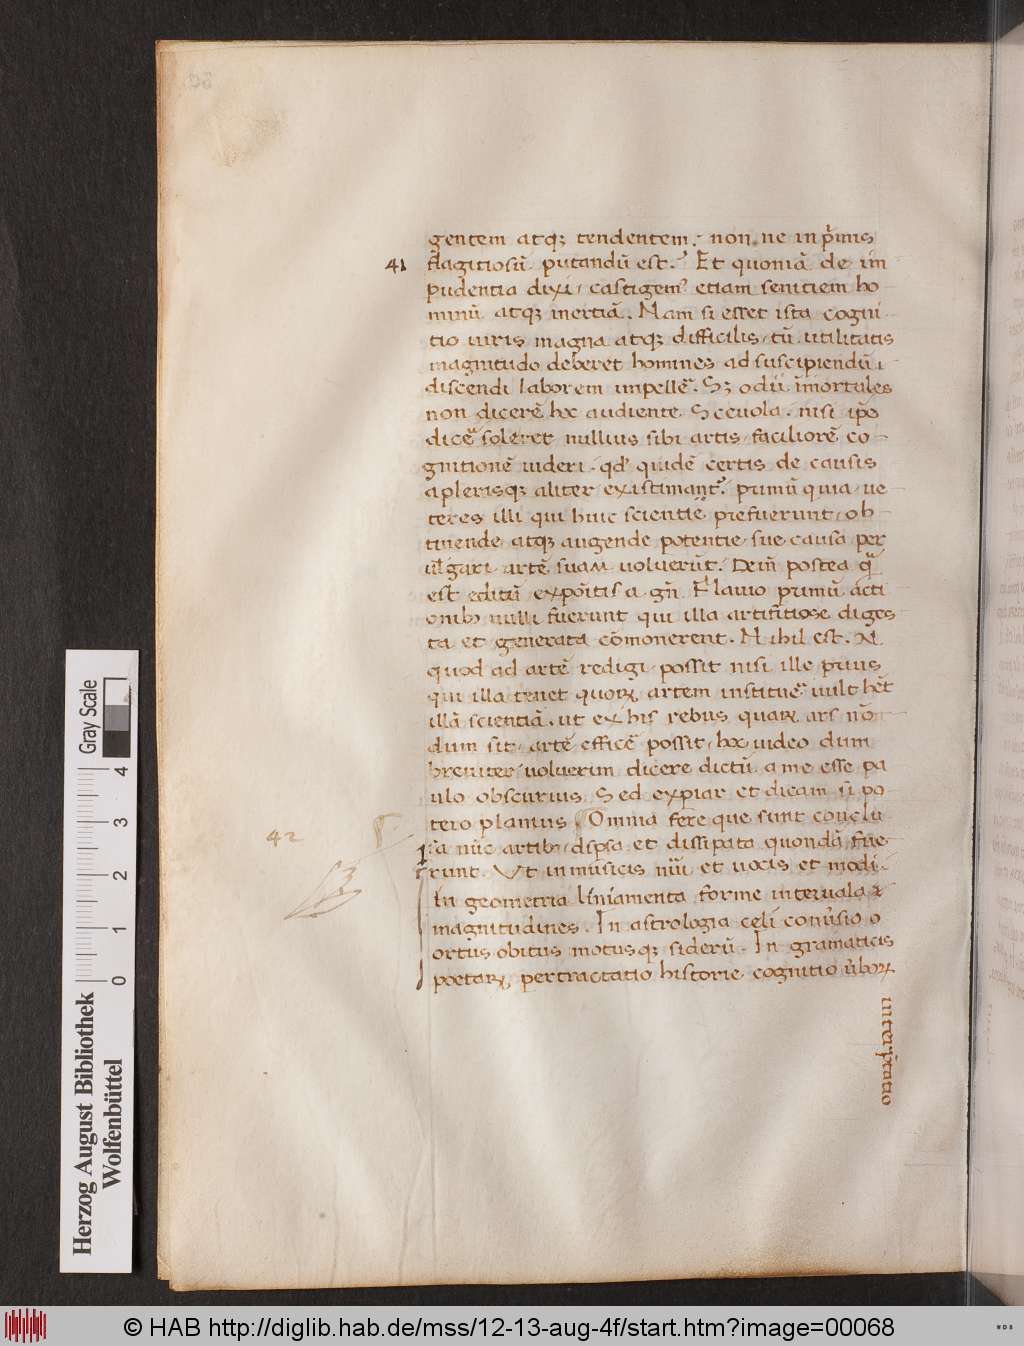 gentem atqꝫ tendentem. non ne in pͥmis
41 flagitiosū putandū est. Et quoniā de im
pudentia dixi, castigem⁹ etiam senitiem ho
minū atqꝫ inertiā. Nam si esset ista cogni
tio iuris magna atqꝫ difficilis, tū utilitatis
magnitudo deberet homines ad suscipiendū
discendi laborem impellē. Sꝫ o dii īmortales
non dicerē hoc audiente Sceuola. nisi ip̄o
dicē soleret nullius sibi artis faciliorē co-
gnitionē uideri. qd' quidē certis de causis
a plerisqꝫ aliter existimant. primū quia ue
teres illi qui huic scientie prefuerunt, ob
tinende atqꝫ augende potentie sue causa per
uulgari artē suam uoluerūt. Dein postea q̄
est editū expōitis a gn̄. Flauio primū acti
onibꝫ nulli fuerunt qui illa artifitiose diges
ta et generata cōmonerent. Nihil est. N.
quod ad artē redigi possit nisi ille prius
qui illa tenet quoꝝ artem instituē uult het
illā scientiā. ut ex his rebus quaꝝ ars nō
dum sit, artē efficē possit, hoc uideo dum
breuiter uoluerim dicere dictū a me esse pa
ulo obscurius. Sed expiar et dicam si po
tero planius. Omnia fere que sunt conclu
42
sa nūc artibꝫ dispsa et dissipata quondā fue
runt. Ut in musicis nūi et uocis et modi.
In geometria liniamenta forme interuala &
magnitudines. In astrologia celi conu̓sio o
ortus obitus motusqꝫ siderū. In gramaticis
poetaꝝ pertractatio historie cognitio u̓boꝝ
interp̄tatio
Gray Scale
0 1 2 3 4
Herzog August Bibliothek
Wolfenbüttel
© HAB http://diglib.hab.de/mss/12-13-aug-4f/start.htm?image=00068